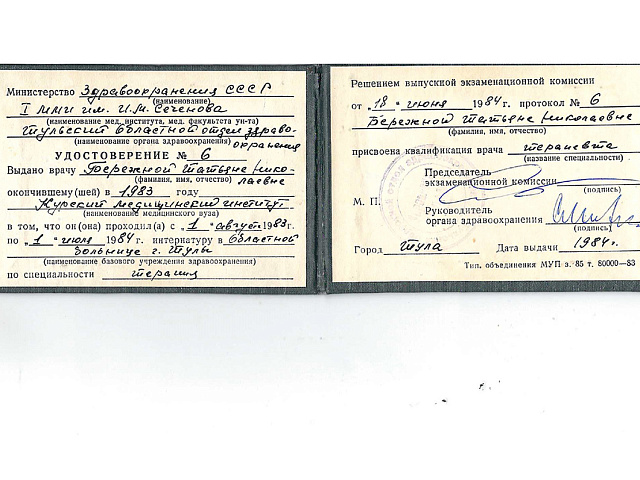 Министерство Здравоохранения СССР
(наименование)
I ММИ им. И.М. Сеченова
(наименование мед. института, мед. факультета ун-та)
Тульский областной отдел здраво-
охранения
(наименование органа здравоохранения)
УДОСТОВЕРЕНИЕ № 6
Выдано врачу Бережной Татьяне Нико-
лаевне
(фамилия, имя, отчество)
окончившему(шей) в 1983 году
Курский медицинский институт
(наименование медицинского вуза)
в том, что он(она) проходил(а) с „1" август 1983г.
по „1" июля 1984г. интернатуру в Областной
больнице г. Тулы
(наименование базового учреждения здравоохранения)
по специальности терапия
Решением выпускной экзаменационной комиссии
от „18" июня 1984г. протокол № 6
Бережной Татьяне Николаевне
(фамилия, имя, отчество)
присвоена квалификация врача терапевта
(название специальности)
Председатель
экзаменационной комиссии
(подпись)
М. П.
Руководитель
органа здравоохранения
(подпись)
Город Тула Дата выдачи 1984г.
Тип. объединения МУП з. 85 т. 80000—83